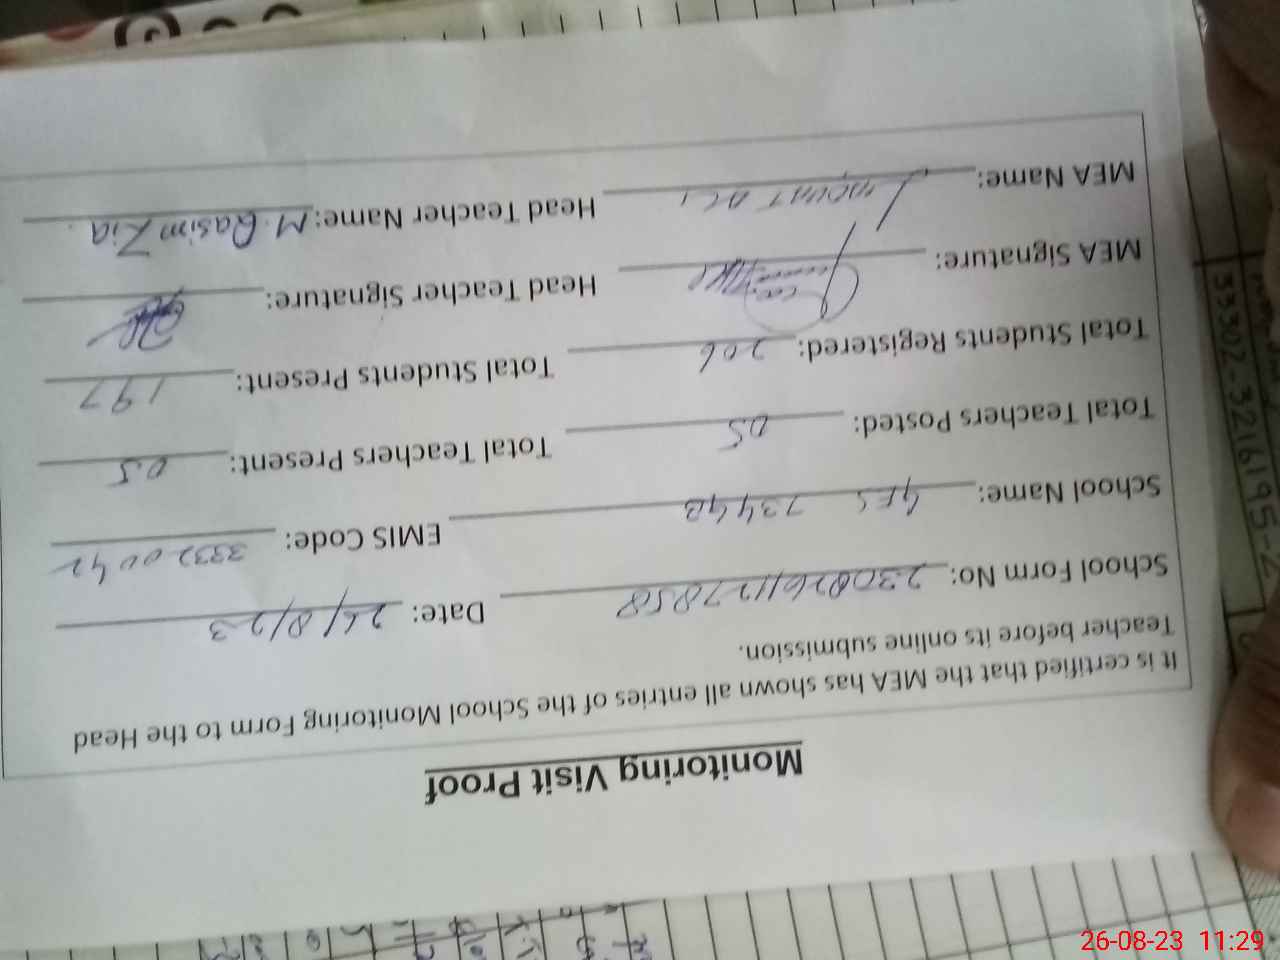 Monitoring Visit Proof
It is certified that the MEA has shown all entries of the School Monitoring Form to the Head
Teacher before its online submission.
School Form No: 2308261127858 Date: 26/8/23
School Name: GES 734GB EMIS Code: 33320042
Total Teachers Posted: 05 Total Teachers Present: 05
Total Students Registered: 206 Total Students Present: 197
MEA Signature: Head Teacher Signature:
MEA Name: Head Teacher Name: M. Qasim Zia
33302-3216195-
26-08-23 11:29